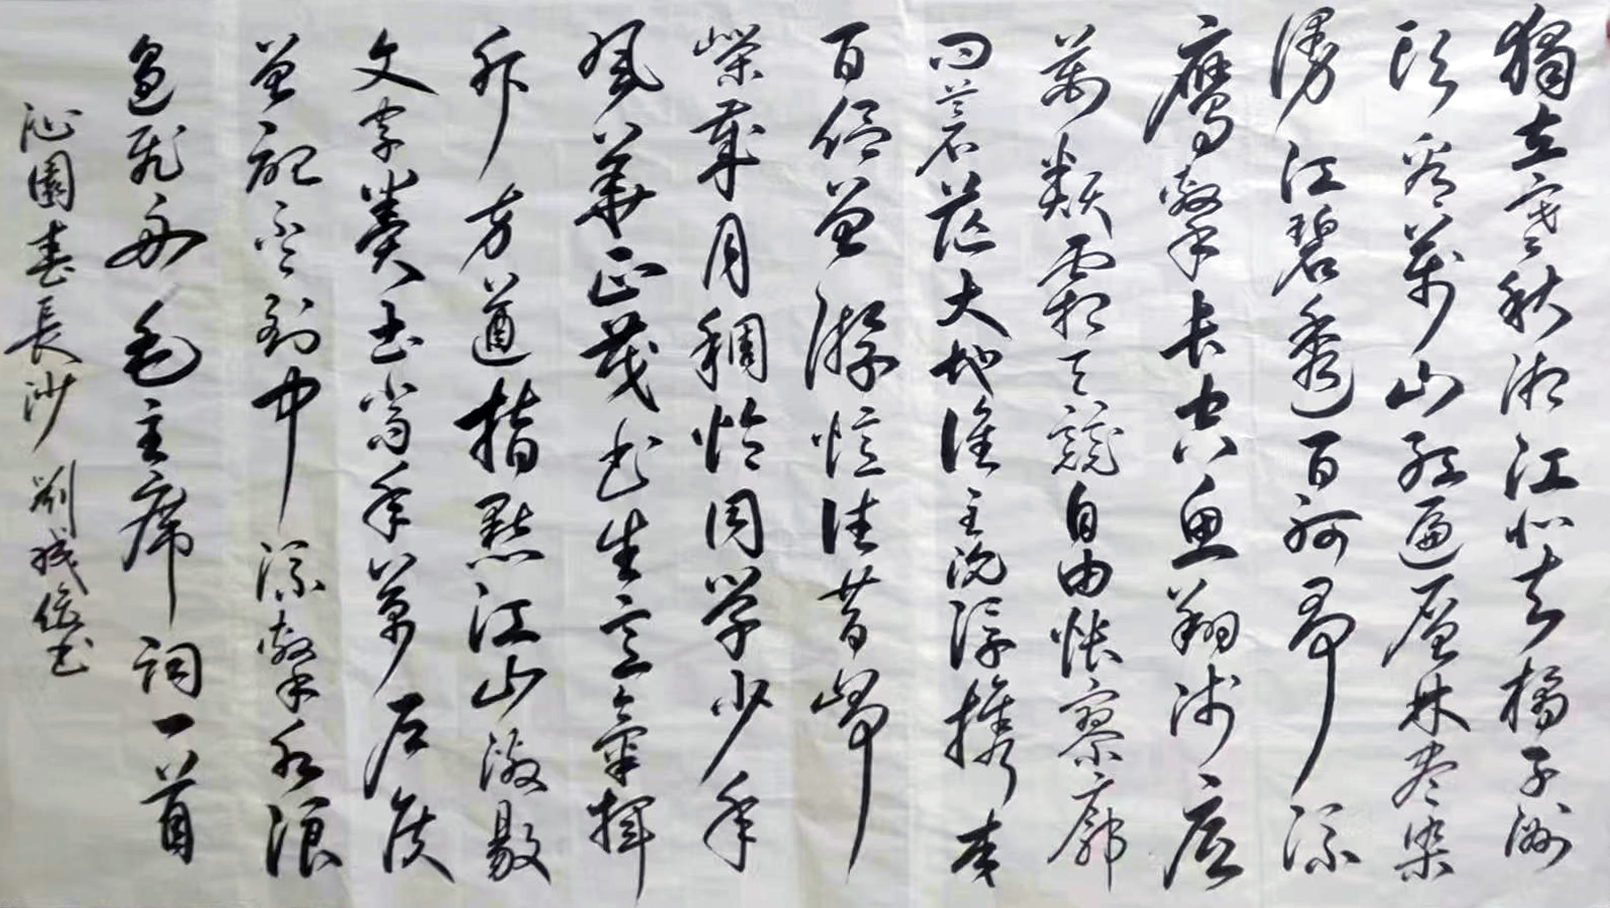 獨立寒秋湘江北去橘子洲
頭看萬山紅遍層林盡染
漫江碧透百舸爭流
鷹擊長空魚翔淺底
萬類霜天競自由悵寥廓
問蒼茫大地誰主沉浮攜來
百侶曾游憶往昔崢
嶸歲月稠恰同學少年
風華正茂書生意氣揮
斥方遒指點江山激揚
文字糞土當年萬戶侯
曾記否到中流擊水浪
遏飛舟毛主席詞一首
沁園春長沙 劉書